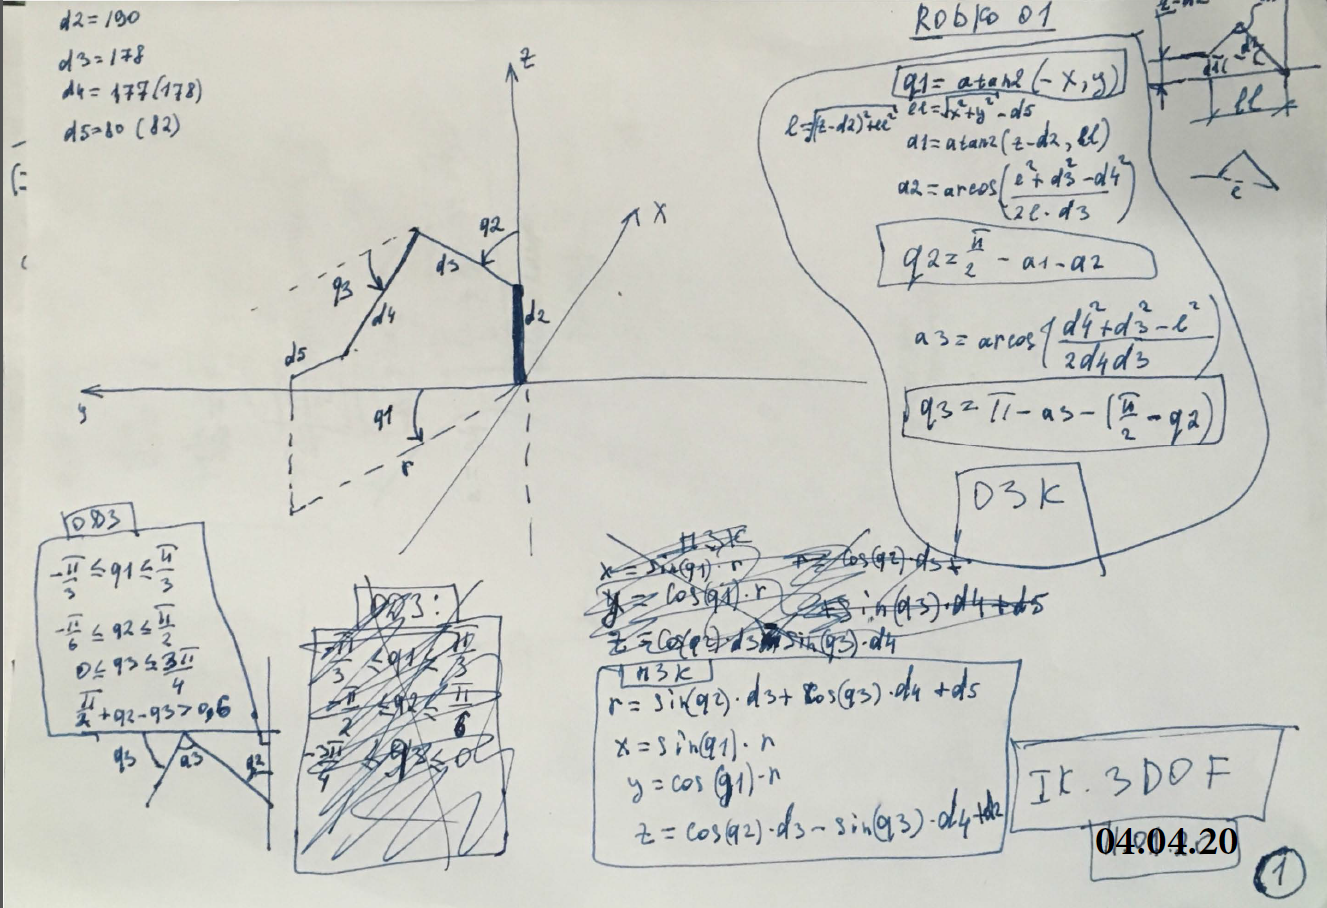 d2=190
d3=178
d4=177(178)
d5=80 (82)
Robko 01
q1=atan2(-x,y)
l=√(z-d2)²+ll²
ll=√x²+y² -d5
a1=atan2(z-d2, ll)
a2=arcos(l²+d3²-d4²/2l·d3)
q2=π/2-a1-a2
a3=arcos(d4²+d3²-l²/2d4d3)
q3=π-a3-(π/2-q2)
ОЗК
ll
l
z
x
y
q2
d3
q3
d4
d5
d2
q1
r
ОДЗ
-π/3≤q1≤π/3
-π/6≤q2≤π/2
0≤q3≤3π/4
π/2+q2-q3>0,6
q3
a3
q2
ОДЗ:
-π/3≤q1≤π/3
-π/2≤q2≤π/6
-3π/4≤q3≤0
ПЗК
x=sin(q1)·r
r=cos(q2)·d3+
y=cos(q1)·r
+sin(q3)·d4+d5
z=cos(q2)·d3-sin(q3)·d4
ПЗК
r=sin(q2)·d3+cos(q3)·d4+d5
x=sin(q1)·r
y=cos(q1)·r
z=cos(q2)·d3-sin(q3)·d4+d2
IK. 3DOF
04.04.20
1